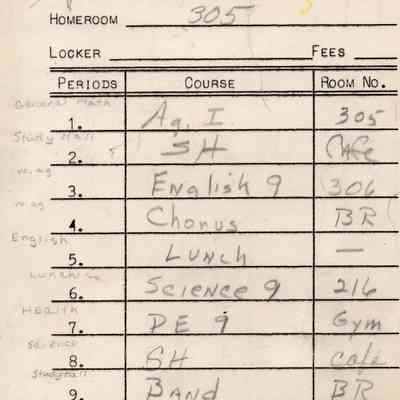 HOMEROOM 305
LOCKER FEES
PERIODS COURSE ROOM NO.
General Math
1. Ag. I 305
Study Hall
2. SH Cafe
m.ag
3. English 9 306
m.ag
4. Chorus BR
English
5. Lunch —
6. Science 9 216
Health
7. PE 9 Gym
Science
8. SH cafe
Studyhall
9. Band BR